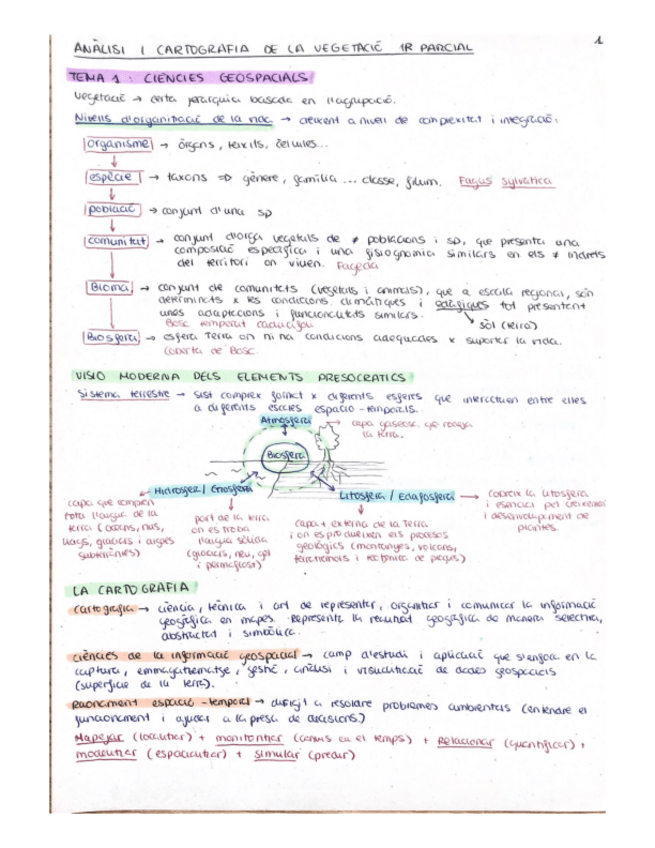 1
ANÀLISI I CARTOGRAFIA DE LA VEGETACIÓ 1R PARCIAL
TEMA 1: CIÈNCIES GEOSPACIALS
Vegetació → certa jerarquia basada en l'agrupació.
Nivells d'organització de la vida → creixent a nivell de complexitat i integració:
organisme → òrgans, teixits, cèl·lules...
espècie → taxons => gènere, família ... classe, fílum. Fagus sylvatica
població → conjunt d'una sp
comunitat → conjunt d'orga vegetals de ≠ poblacions i sp, que presenta una
composició específica i una fisiognomia similars en els ≠ indrets
del territori on viuen. Fageda
Bioma → conjunt de comunitats (vegetals i animals), que a escala regional, són
determinats x les condicions climàtiques i edàfiques tot presentent
unes adaptacions i funcionalitats similars. sòl (terra)
Bosc temperat caducifoli
Biosfera → esfera Terra on hi ha condicions adequades x suportar la vida.
Coberta de Bosc.
VISIÓ MODERNA DELS ELEMENTS PRESOCRÀTICS
Sistema terrestre → sist complex format x diferents esferes que interactuen entre elles
a diferents escales espacio-temporals.
Atmosfera → capa gaseosa que rodeja
la terra.
Biosfera
Hidrosfera / Criosfera
Litosfera / Edafosfera → cobreix la litosfera
i esencial pel creixement
i desenvolupament de
plantes.
capa que comprèn
tota l'aigua de la
terra (oceans, rius,
llacs, glaciars i aigües
subterrànies)
part de la terra
on es troba
l'aigua sòlida
(glaciars, neu, gel
i permafrost)
capa + externa de la Terra
i on es produeixen els processos
geològics (muntanyes, volcans,
terratrèmols i tectònica de plaques)
LA CARTOGRAFIA
Cartografia → ciència, tècnica i art de representar, organitzar i comunicar la informació
geogràfica en mapes. Representa la realitat geogràfica de manera selectiva,
abstracta i simbòlica.
Ciències de la informació geospacial → camp d'estudi i aplicació que s'enfoca en la
captura, emmagatzematge, gestió, anàlisi i visualització de dades geospacials
(superfície de la terra).
Raonament espacio-temporal → dirigit a resoldre problemes ambientals (entendre el
funcionament i ajudar a la presa de decisions)
Mapejar (localitzar) + monitoritzar (canvis en el temps) + Relacionar (quantificar) +
modelitzar (espacialitzar) + simular (predir)